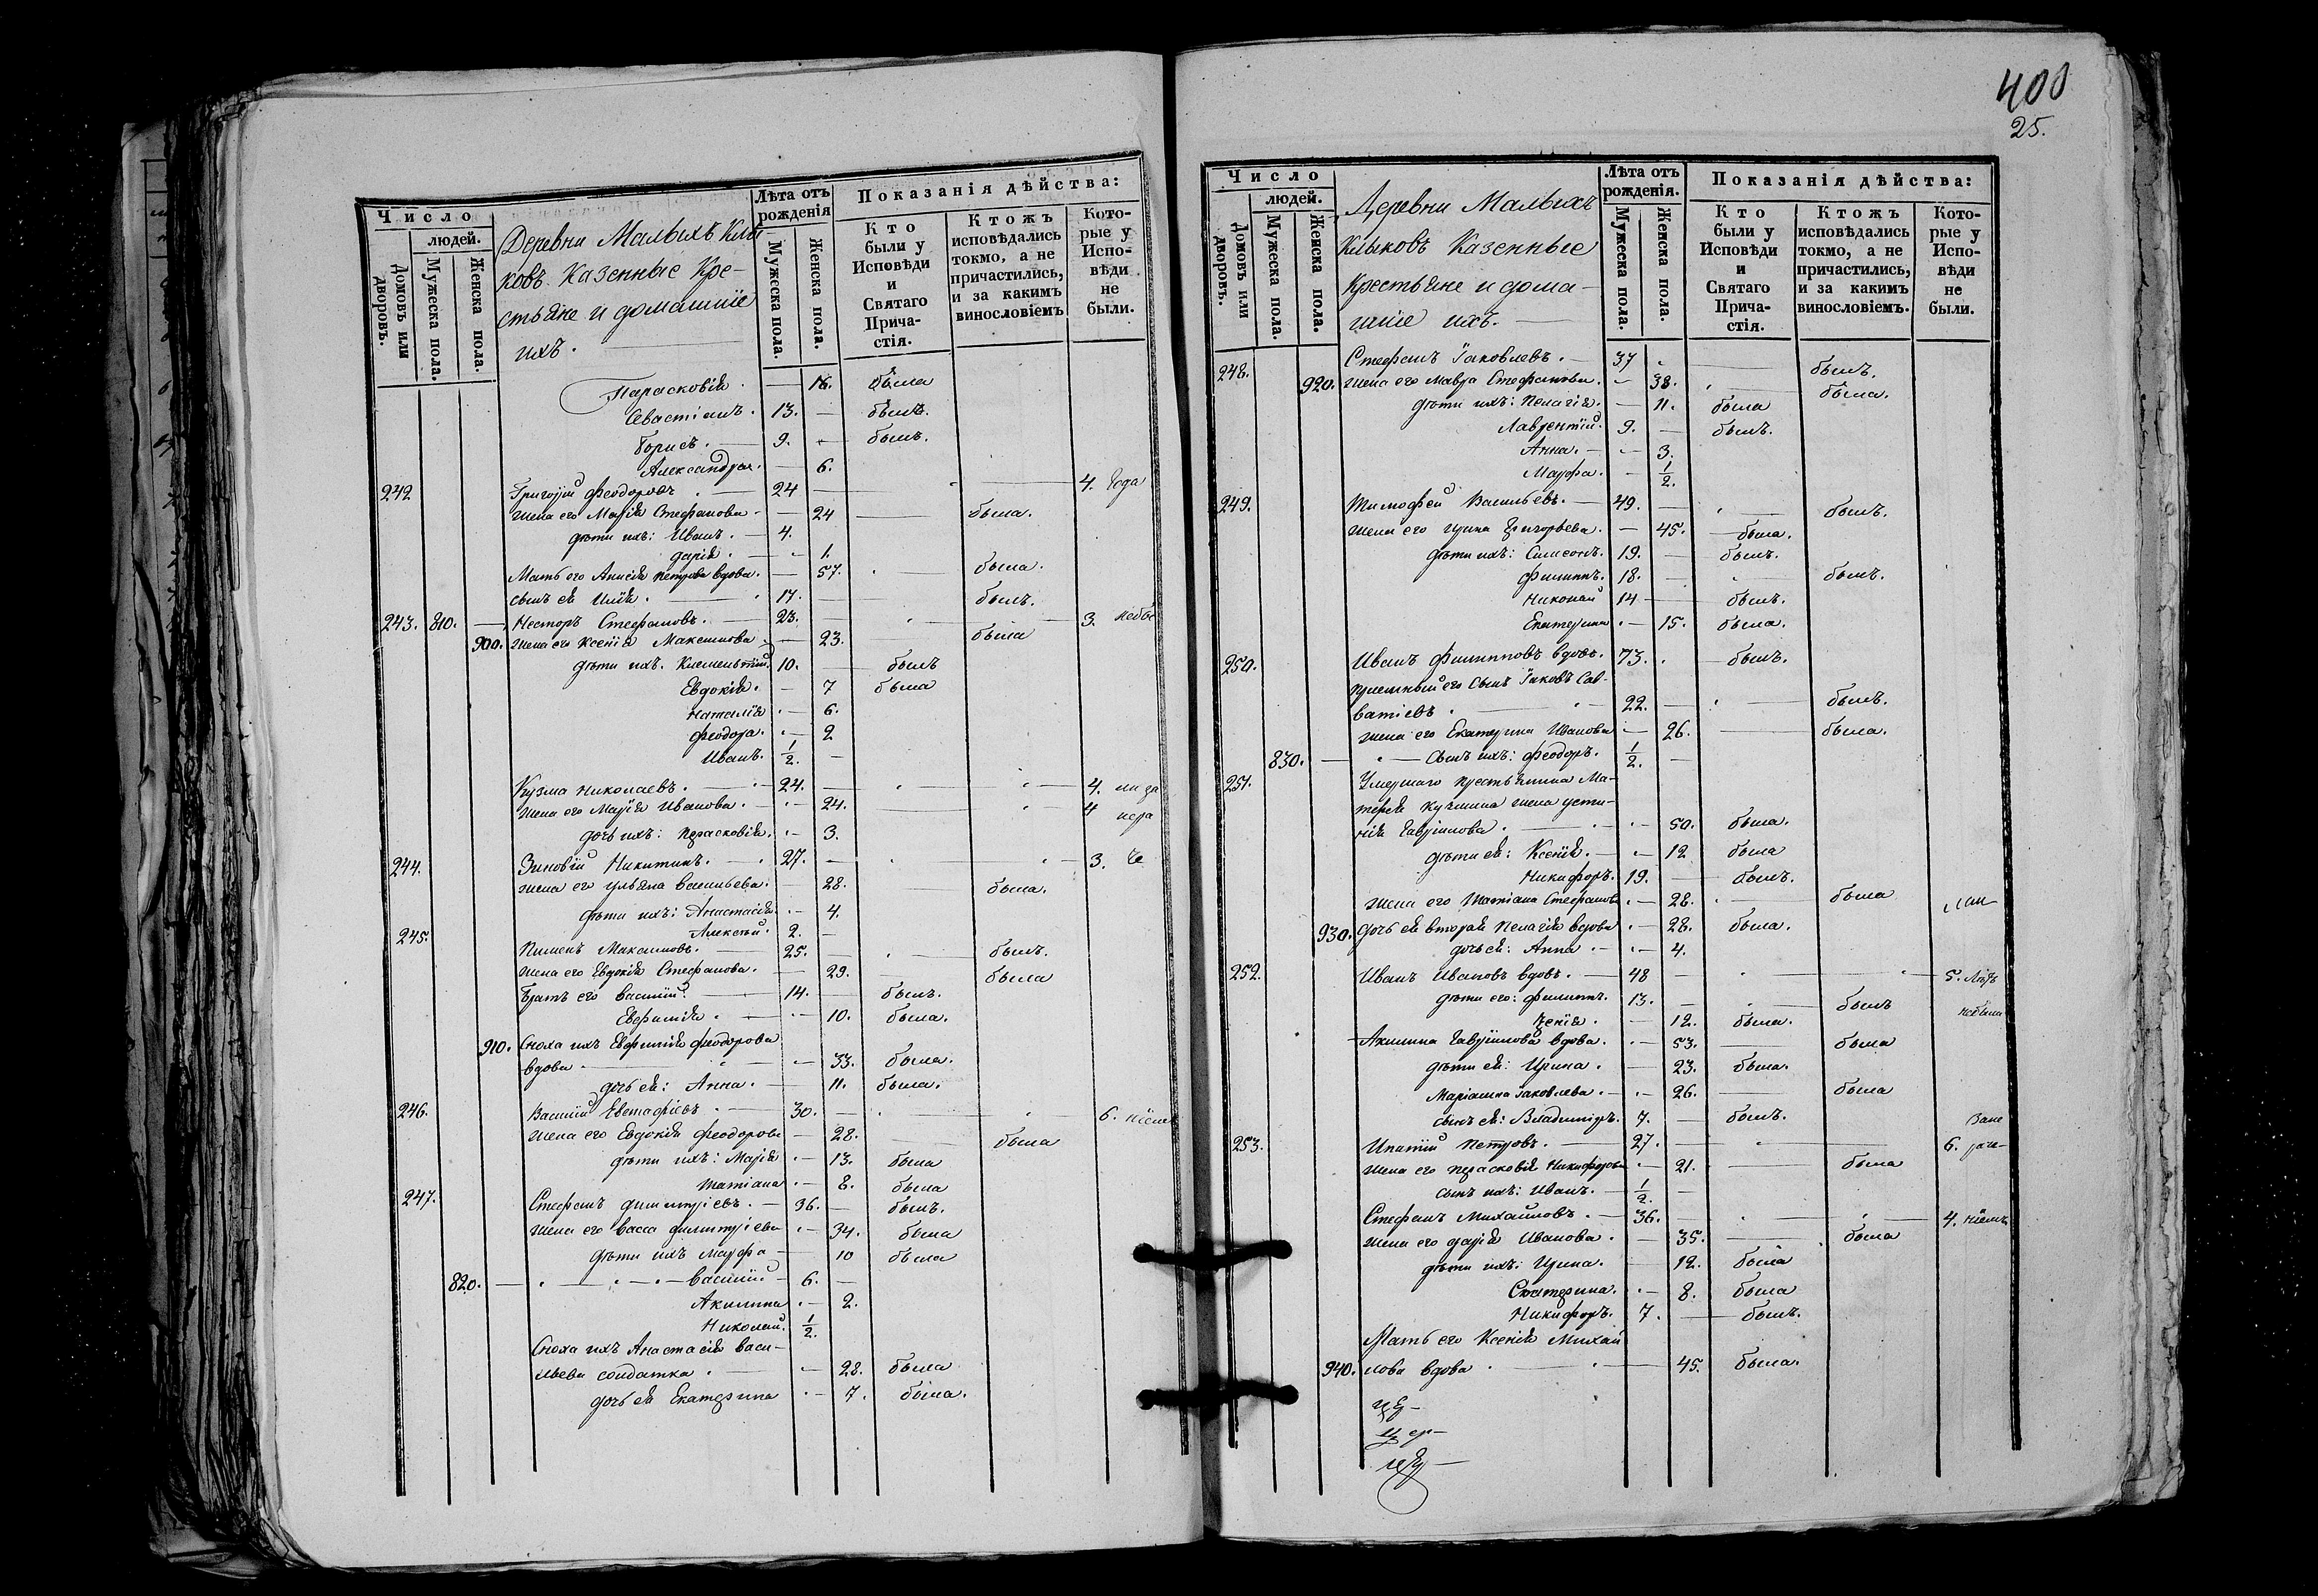 Число
людей.
Домовъ или дворовъ.
Мужеска пола.
Женска пола.
Деревни Малыхъ Клы-
ковъ Казенные Кре-
стьяне и домашніе
ихъ.
Лѣта отъ рожденія
Мужеска пола.
Женска пола.
Показанія дѣйства:
Кто были у Исповѣди и Святаго Причастія.
Ктожъ исповѣдались токмо, а не причастились, и за какимъ винословіемъ
Которые у Исповѣди не были.
Парасковія. — 16. была
Севастіанъ. 13. — былъ.
Борисъ. — 9. — былъ.
Александра. — 6.
242 Григорій Феодоровъ . — 24 — 4. года
жена его Марія Стефанова — 24 — была.
дѣти ихъ: Иванъ. — 4.
Дарія. — 1.
Мать его Анисія Петрова вдова. — 57. была.
сынъ ея Илія. — 17. — былъ.
243. 810. — Несторъ Стефановъ. — 23. — 3.
900. жена его Ксенія Максимова — 23. была
дѣти ихъ. Климентій. 10. — былъ
Евдокія. — 7 была
Наталія — 6.
Феодора. — 2
Иванъ. 1/2. —
Кузма Николаевъ. — 24. — 4.
жена его Марія Иванова. — 24. — 4
дочь ихъ: Парасковія. — 3.
244. Зиновій Никитинъ. — 27. — 3.
жена его Ульяна Васильева. — 28. была.
дѣти ихъ: Анастасія. — 4.
Алексѣй. 2. —
245. Пименъ Максимовъ. — 25. — былъ.
жена его Евдокія Стефанова. — 29. — была
Братъ его Василій. — 14. — былъ.
Евфимія. — 10. была.
910. Сноха ихъ Евфимія Феодорова
вдова. — 33. была.
дочь ея: Анна. — 11. была.
246. Василій Евстафіевъ. — 30. — 6.
жена его Евдокія Феодорова — 28. — была
дѣти ихъ: Марія — 13. была
Татіана — 8. была
247. Стефанъ Димитріевъ. — 36. — былъ.
жена его Васса Димитріева — 34. была
дѣти ихъ Марфа — 10 была
820. — Василій — 6. —
Акилина — 2.
Николай. 1/2.
Сноха ихъ Анастасія Васи-
льева солдатка. — 28. была
дочь ея Екатерина — 7. была.
400
25.
Число
людей.
Домовъ или дворовъ.
Мужеска пола.
Женска пола.
Деревни Малыхъ
Клыковъ Казенные
Крестьяне и дома-
шніе ихъ. —
Лѣта отъ рожденія.
Мужеска пола.
Женска пола.
Показанія дѣйства:
Кто были у Исповѣди и Святаго Причастія.
Ктожъ исповѣдались токмо, а не причастились, и за какимъ винословіемъ.
Которые у Исповѣди не были.
248. Стефанъ Іаковлевъ. — 37 — былъ.
920. жена его Мавра Стефанова. — 38. — была.
дѣти ихъ: Пелагія. — 11. была
Лаврентій. 9. — былъ.
Анна. — 3.
Марфа. — 1/2.
249. Тимофей Васильевъ. — 49. — былъ.
жена его Ирина Григорьева. — 45. — была.
дѣти ихъ: Симеонъ. 19. — былъ.
Филиппъ. 18. — былъ.
Николай 14 — былъ.
Екатерина — 15. была.
250. Иванъ Филипповъ вдовъ. 73. — былъ.
пріемный его Сынъ Іаковъ Сав-
ватіевъ. — 22. — былъ.
жена его Екатерина Иванова — 26. — была.
830. — Сынъ ихъ: Феодоръ. 1/2. —
251. Умершаго крестьянина Ма-
жена Усти-
нія Гавріилова. — 50. была.
дѣти ея: Ксенія. — 12 была
Никифоръ. 19. — былъ.
жена его Татіана Стефанова — 28. — была
930. дочь ея вторая Пелагія вдова — 28. была.
дочь ея: Анна — 4.
252. Иванъ Ивановъ вдовъ. — 48 — 5. лѣтъ
дѣти его: Филиппъ. 13. — былъ
Ксенія. — 12. была.
Акилина Гавріилова вдова. — 53. — была
дѣти ея: Ирина. — 23. была.
Маріамна Іаковлева. — 26. — была
сынъ ея: Владиміръ. 7. — былъ.
253. Ипатій Петровъ. — 27. — 6.
жена его Парасковія Никифорова — 21. — была
сынъ ихъ: Иванъ. — 1/2. —
Стефанъ Михайловъ. — 36. — 4.
жена его Дарія Иванова. — 35. — была
дѣти ихъ: Ирина. — 12. была
Екатерина. — 8. была
Никифоръ. 7. — былъ.
Мать его Ксенія Михай
940. лова вдова — 45. была.